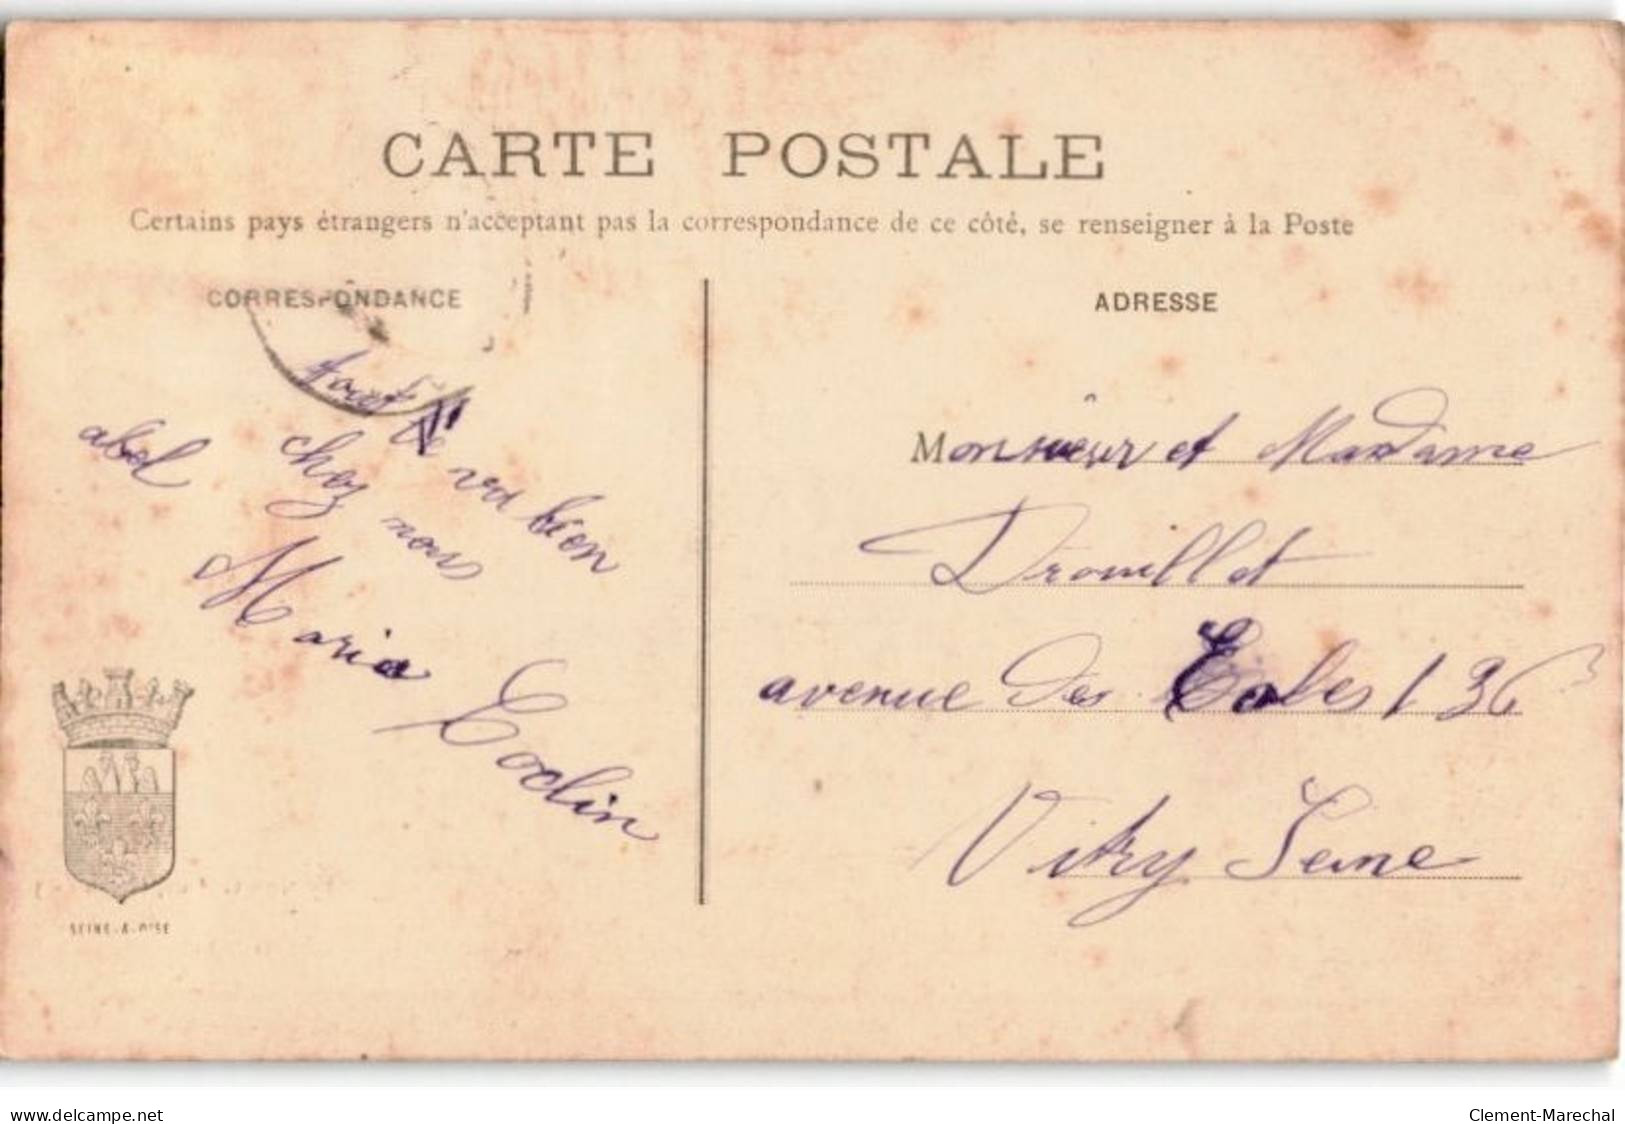 CARTE POSTALE
Certains pays étrangers n'acceptant pas la correspondance de ce côté, se renseigner à la Poste
CORRESPONDANCE
ADRESSE
tout
va bien
chez nous
abel
Maria
Monsieur et Madame
Drouillet
avenue des Ecoles 136
Vitry Seine
SEINE-&-OISE
www.delcampe.net
Clement-Marechal